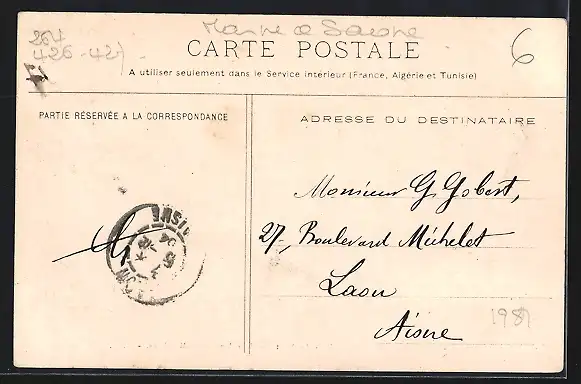 264
426-427
6
CARTE POSTALE
A utiliser seulement dans le Service intérieur (France, Algérie et Tunisie)
PARTIE RÉSERVÉE A LA CORRESPONDANCE
ADRESSE DU DESTINATAIRE
Monsieur G. Gobert,
27, Boulevard Michelet
Laon
Aisne
AISNE
198